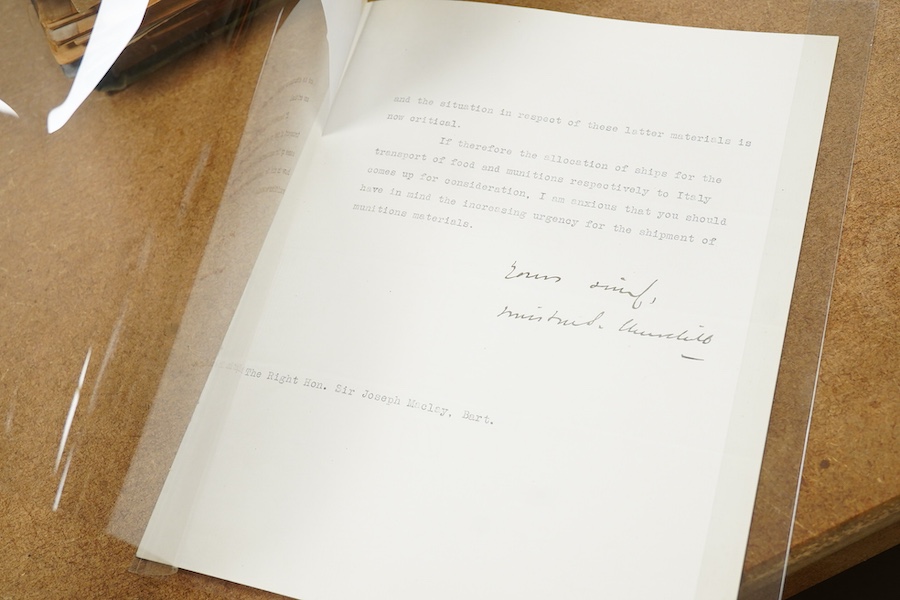 and the situation in respect of these latter materials is
now critical.
If therefore the allocation of ships for the
transport of food and munitions respectively to Italy
comes up for consideration, I am anxious that you should
have in mind the increasing urgency for the shipment of
munitions materials.
Yours
Winston S. Churchill
The Right Hon. Sir Joseph Maclay, Bart.